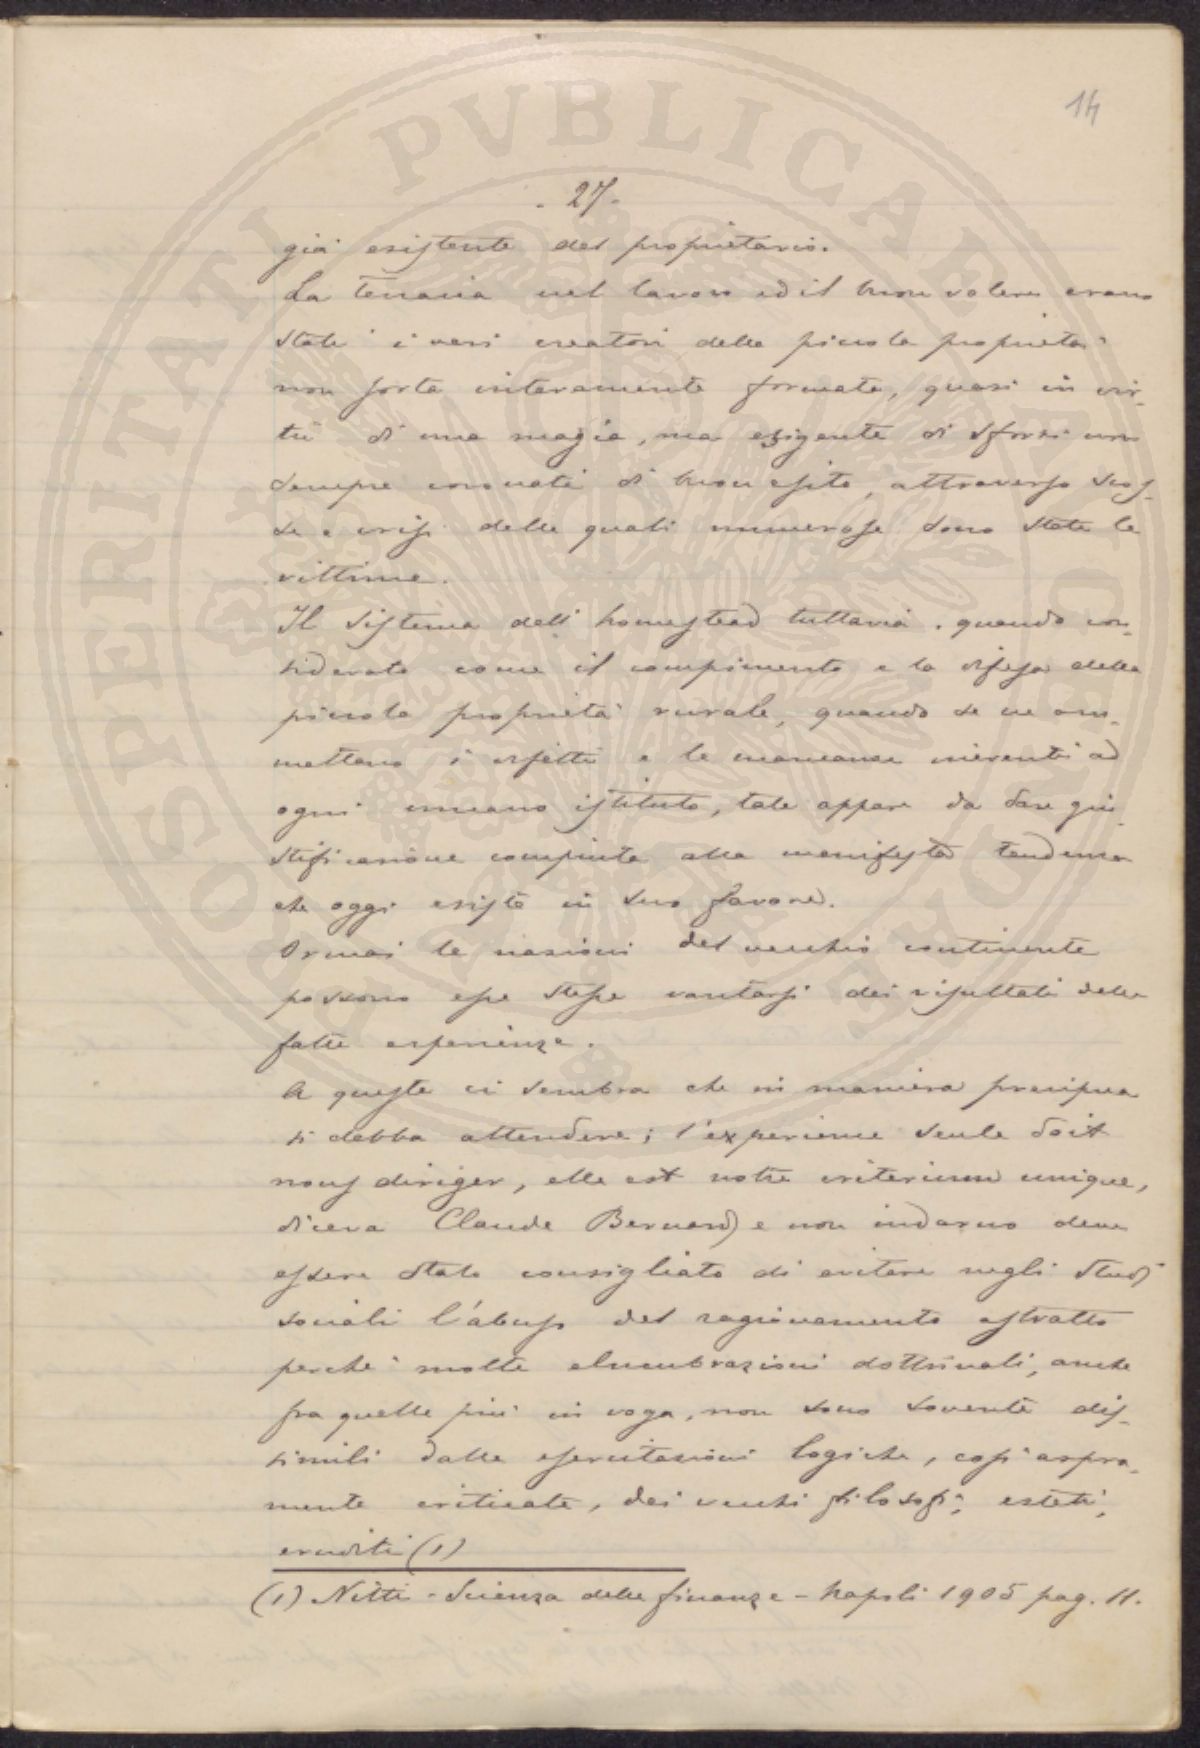 14
- 27 -
già esistente del proprietario.
La tenacia nel lavoro ed il buon volere erano
stati i veri creatori della piccola proprietà
non sorta interamente formata, quasi in vir-
tù di una magia, ma esigente di sforzi non
sempre coronati di buon esito, attraverso scos-
se e crisi delle quali numerose sono state le
vittime.
Il sistema dell'homestead tuttavia, quando con-
siderato come il compimento e la difesa della
piccola proprietà rurale, quando se ne am-
mettano i difetti e le mancanze inerenti ad
ogni umano istituto, tale appare da dare giu-
stificazione compiuta alla manifesta tendenza
che oggi esiste in suo favore.
Ormai le nazioni del vecchio continente
possono esse stesse vantarsi dei risultati delle
fatte esperienze.
A queste ci sembra che in maniera precipua
si debba attendere; l'experience seule doit
nous diriger, elle est notre criterium unique,
diceva Claude Bernard e non indarno deve
essere stato consigliato di evitare negli studi
sociali l'abuso del ragionamento astratto
perchè molte elucubrazioni dottrinali, anche
fra quelle più in voga, non sono sovente dis-
simili dalle esercitazioni logiche, così aspra-
mente criticate, dei vecchi filosofi, esteti,
eruditi (1)
(1) Nitti - Scienza delle finanze - Napoli 1905 pag. 11.
PROSPERITATI PVBLICAE AVGENDAE